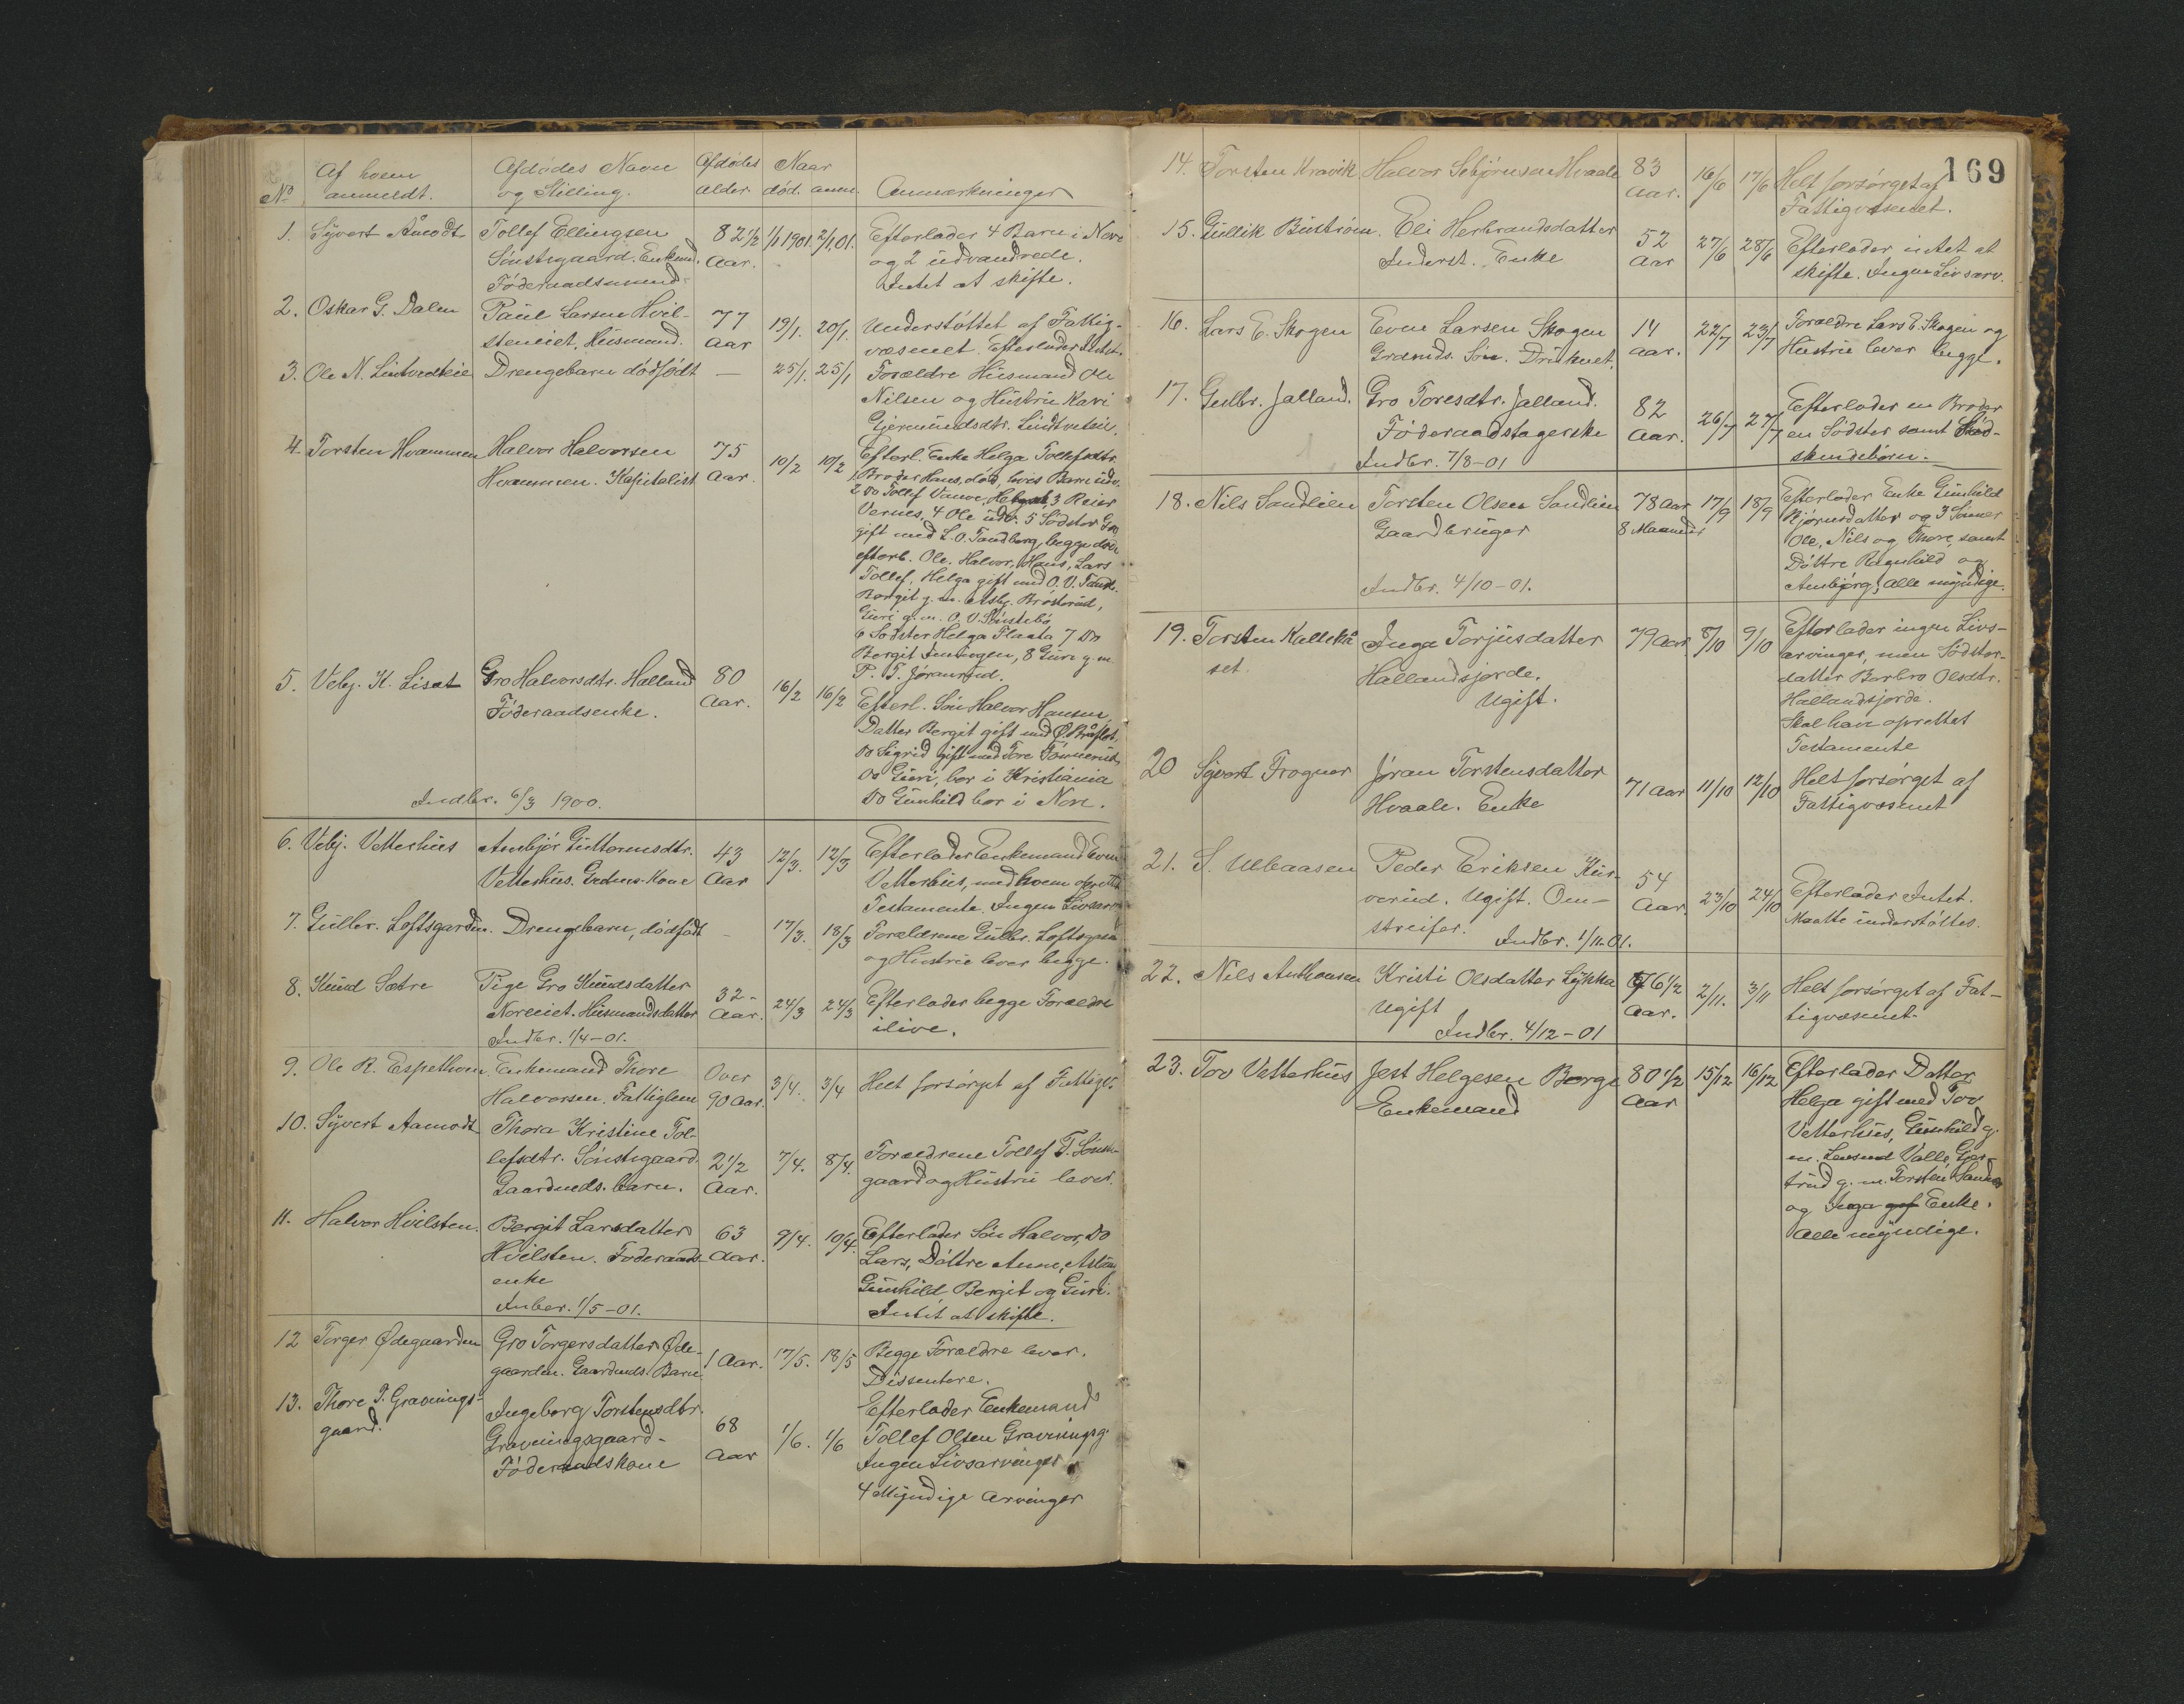 No
Af hvem anmeldt.
Afdødes Navn og Stilling.
Afdødes alder
Naar død. anm.
Anmærkninger
1. Syvert Åmodt Tollef Ellingsen 82½ 1/1 1901. 2/1 01. Efterlader 4 Barn i Nore
Sønstegaard. Enkemd. Aar. og 2 udvandrede.
Føderaadsmand Intet at skifte.
2. Oskar G. Dalen Paul Larsen Hvil- 77 19/1. 20/1. Understøttet af Fattig-
steneiet, Husmand. Aar væsenet. Efterlader Intet.
3. Ole N. Lintvedteie Drengebarn dødfødt — 25/1. 25/1 Forældre Husmand Ole
Nilsen og Hustru Kari
Gjermundsdtr.
4. Torsten Hvammen Halvor Halvorsen 75 10/2 10/2 Efterl. Enke Helga Tollefsdtr.
Hvammen. Kapitalist Aar. 1 Broder Hans, død, hvis Barn udv.
2 Do Tollef 3 Reier
Vernes, 4 Ole udv. 5 Sødster Gro
gift med L. O. Tandberg, begge døde
efterl. Ole, Halvor, Hans, Lars
Tollef, Helga gift med O. V.
Bergit g. m.
Guri g. m. O. V. Sønstebø
6 Sødster Helga Flaata 7 Do
Bergit 8 Guri g. m.
P. T. Jøranrud.
5. Vebj. K. Lisæt Gro Halvorsdtr. Halland 80 16/2 16/2 Efterl. Søn Halvor Hansen,
Føderaadsenke. Aar. Datter Bergit gift med
Do Sigrid gift med Tore
Do Guri, bor i Kristiania
Indbr. 6/3 1900. Do Gunhild bor i Nore.
6. Vebj. Vetterhus Ambjør Guttormsdtr. 43 12/3. 12/3 Efterlader Enkemand Even
Vetterhus. Grdms. Kone Aar Vetterhus, med hvem oprettet
Testamente. Ingen Livsarv.
7. Gulbr. Loftsgarden. Drengebarn, dødfødt – 17/3. 18/3 Forældrene Gulbr. Loftsgard
og Hustru lever begge.
8. Knud Sætre Pige Gro Knudsdatter 32- 24/3 24/3 Efterlader begge Forældre
Noreeiet. Husmandsdatter Aar. ilive.
Indbr. 1/4–01.
9. Ole R. Espethven. Enkemand Thore Over 3/4. 3/4 Helt forsørget af Fattigv.
Halvorsen. Fattiglem 90 Aar.
10. Syvert Aamodt Thora Kristine Tol-
lefsdtr. Sønstegaard 2½ 7/4. 8/4. Forældrene Tollef T. Sønste-
Gaardmds. barn. Aar. gaard og Hustru lever.
11. Halvor Hvilsten. Bergit Larsdatter 63 9/4. 10/4. Efterlader Søn Halvor, Do
Hvilsten. Føderaads- Aar. Lars, Døttre Anne,
enke Gunhild Bergit og Guri.
Inber. 1/5–01. Intet at skifte.
12 Torger Ødegaarden Gro Torgersdatter Øde- 1 Aar. 17/5. 18/5 Begge Forældre lever.
gaarden. Gaardmds. Barn Dissentere.
13. Thore T. Gravnings- Ingeborg Torstensdtr. 68 1/6. 1/6 Efterlader Enkemand
gaard. Gravningsgaard- Aar Tollef Olsen Gravningsg.
Føderaadskone Ingen Livsarvinger
4 Myndige Arvinger
169
14. Torsten Kravik Halvor Sebjørnsen Hvaale 83 16/6 17/6 Helt forsørget af
Aar. Fattigvæsenet.
15. Gullik Bustrøm. Eli Herbrandsdatter 52 27/6 28/6 Efterlader intet at
Inderst. Enke Aar skifte. Ingen Livsarv.
16. Lars E. Skogen Even Larsen Skogen 14 22/7 23/7 Forældre Lars E. Skogen og
Grdmds. Søn. Druknet. Aar. Hustru lever begge.
17. Gulbr. Jalland. Gro Toresdtr. Jalland. 82 26/7 27/7 Efterlader en Broder
Føderaadstagerske Aar. en Sødster samt Sød-
Indbr. 7/8–01 skendebørn.
18. Nils Sandlien Torsten Olsen Sandlien 78 Aar 17/9 18/9 Efterlader Enke Gunhild
Gaardbruger 8 Maaneder Bjørnsdatter og 3 Sønner
Ole, Nils og Thore, samt
Døttre Ragnhild og
Indbr. 4/10–01. Ambjørg, alle myndige.
19. Torsten Kullekå- Inga Torjusdatter 79 Aar 8/10 9/10 Efterlader ingen Livs-
set. Hallandsjorde. arvinger, men Sødster-
Ugift. datter Barbro Olsdtr.
Hallandsjorde.
Skal have oprettet
Testamente
20 Syvert Frogner Jøran Torstensdatter 71 Aar 11/10 12/10 Helt forsørget af
Hvaale. Enke Fattigvæsenet
21. S. Ulbaasen Peder Eriksen Kur- 54 23/10 24/10 Efterlader Intet.
verud. Ugift. Om- Aar. Maatte understøttes.
streifer. Indbr. 1/11–01.
22. Nils Anthonsen Kristi Olsdatter Lykkja 76½ 2/11. 3/11 Helt forsørget af Fat-
Ugift Aar. tigvæsenet.
Indbr. 4/12–01
23. Tov Vetterhus Jest Helgesen Borge 80½ 15/12 16/12 Efterlader Datter
Enkemand Aar Helga gift med Tov
Vetterhus, Gunhild g.
m. Valle, Gjer-
trud g. m. Torsten
og Inga Enke.
Alle myndige.